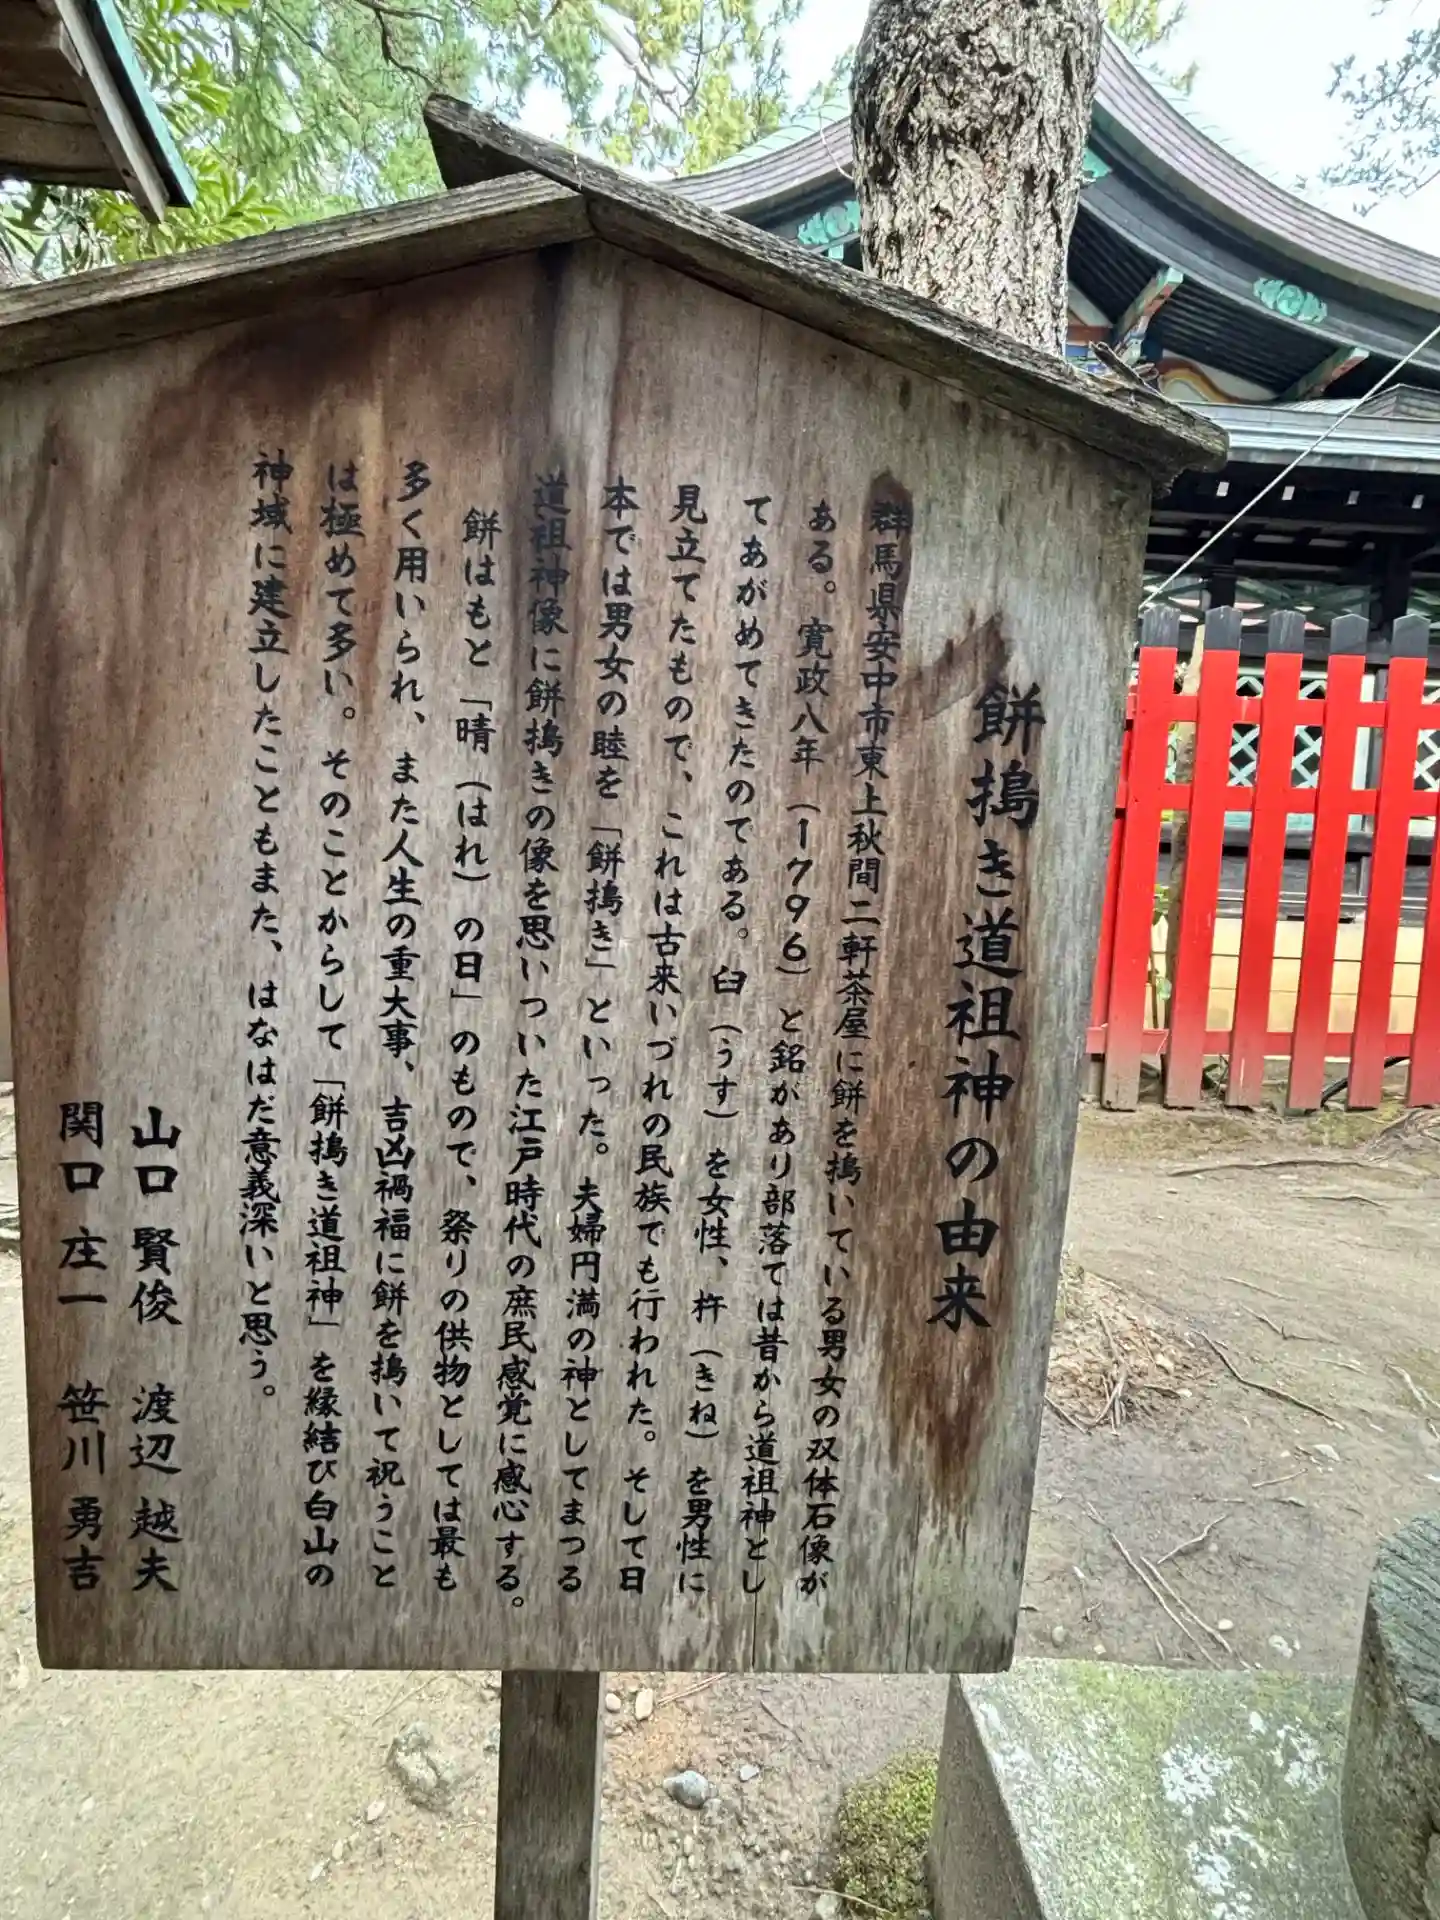 餅搗き道祖神の由来
群馬県安中市東上秋間二軒茶屋に餅を搗いている男女の双体石像が
ある。寛政八年（１７９６）と銘があり部落では昔から道祖神とし
てあがめてきたのである。臼（うす）を女性、杵（きね）を男性に
見立てたもので、これは古来いづれの民族でも行われた。そして日
本では男女の睦を「餅搗き」といった。夫婦円満の神としてまつる
道祖神像に餅搗きの像を思いついた江戸時代の庶民感覚に感心する。
餅はもと「晴（はれ）の日」のもので、祭りの供物としては最も
多く用いられ、また人生の重大事、吉凶禍福に餅を搗いて祝うこと
は極めて多い。そのことからして「餅搗き道祖神」を縁結び白山の
神域に建立したこともまた、はなはだ意義深いと思う。
山口 賢俊 渡辺 越夫
関口 庄一 笹川 勇吉